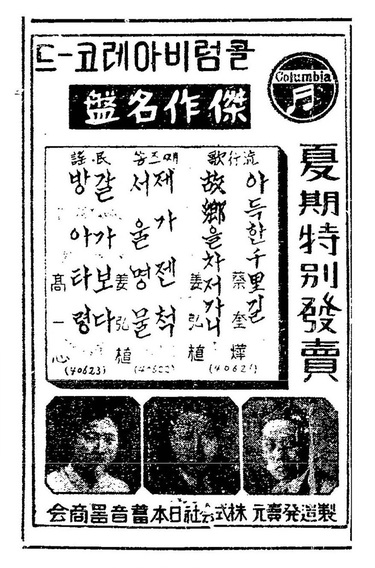 콜럼비아레코-드
Columbia
傑作名盤
夏期特別發賣
流行歌
아득한千里길 蔡奎燁
故鄕을차저가니 姜弘植
(40621)
제가젠척
서울명물 姜弘植
(40622)
民謠
갈가보다
방아타령 高一心
(40623)
製造発賣元 株式会社日本蓄音器商会